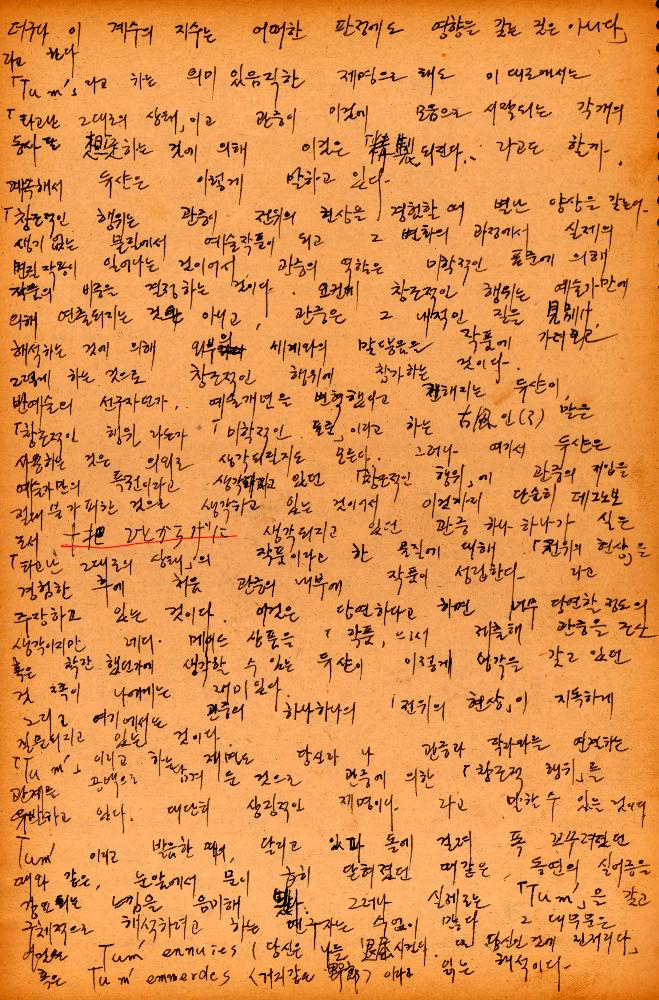 더구나 이 계수의 지수는 어떠한 판정에도 영향을 갖는 것은 아니다」
라고 한다
「Tu m'」라고 하는 의미 있음직한 제명으로 해도 이대로에서는
「타고난 그대로의 상태」이고 관중이 이것에 모음으로 시작되는 각개의
동사를 想定하는 것에 의해 이것은 「精製 되린다」라고도 할까.
계속해서 듀샨은 이렇게 말하고 있다.
「창조적인 행위는 관중이 전위의 현상을 경험할 때 별난 양상을 갖는다.
생기 없는 물질에서 예술작품이 되고 그 변화의 과정에서 실제의
변질작용이 일어나는 것이어서 관중의 역할은 미학적인 표준에 의해
작품의 비중을 결정하는 것이다. 요컨대 창조적인 행위는 예술가만에
의해 연출되지는 것은 아니고, 관중은 그 내적인 질을 見別하,
해석하는 것에 의해 외부의 세계와의 맞닿음을 작품에 가져오고
그렇게 하는 것으로 창조적인 행위에 참가하는 것이다.
반예술의 선구자던가, 예술개념을 변혁했다고 전해지는 듀샨이,
「창조적인 행위」라든가 「미학적인 표준」이라고 하는 古風인(3) 말을
사용하는 것은 의외로 생각되릴지도 모른다. 그러나 여기서 듀샨은
예술가만의 특권이라고 생각해지고 있던 「창조적인 행위」에 관중의 개입을
절대 불가피한 것으로 생각하고 있는 것이어서 이것까지 단순히 데그노보
로서 十把 ひとからげに 생각되지고 있던 관중 하나하나가 실은
「타고난 그대로의 상태」의 작품이라고 한 물질에 대해 「전위의 현상」을
경험한 후에 처음 관중의 내부에 작품이 성립한다- 라고
주장하고 있는 것이다. 이것은 당연하다고 하면 너무 당연할 정도의
생각이지만 레디·메이드 상품을 「작품」으로서 제출해 관중을 조소
혹은 착각 했던가에 생각할 수 있는 듀샨이 이렇게 생각을 갖고 있던
것 쪽이 나에게는 재미있다.
그리고 여기에서는 관중의 하나하나의 「전위의 현상」이 지독하게
질문되지고 있는 것이다.
「Tu m'」이라고 하는 제명도 당신과 나 관중과 작자와를 연결하는
관계를 공백으로 남겨 둔 것으로 관중에 의한 「창조적 행위」를
유발하고 있다. 대단히 상징적인 제명이다- 라고 말할 수 있을 것이다
Tum' 이라고 발음한 때의, 달리고 있다 돌에 걸려 푹 꼬꾸러졌던
때와 같은, 눈앞에서 문이 닫혀졌던 때같은, 돌연의 실어증을
강요되는 느낌을 음미해 했다. 그러나 실제로는 「Tum'」을 갖고
구체적으로 해석하려고 하는 연구자는 수없이 많다 그 대부분은
이것을 Tum' ennuies (당신은 나를 退屈시킨다. 당신인 것에 진저리다」
혹은 Tu m' emmerdes (거리같은 野郎) 이라고 읽는 해석이다.